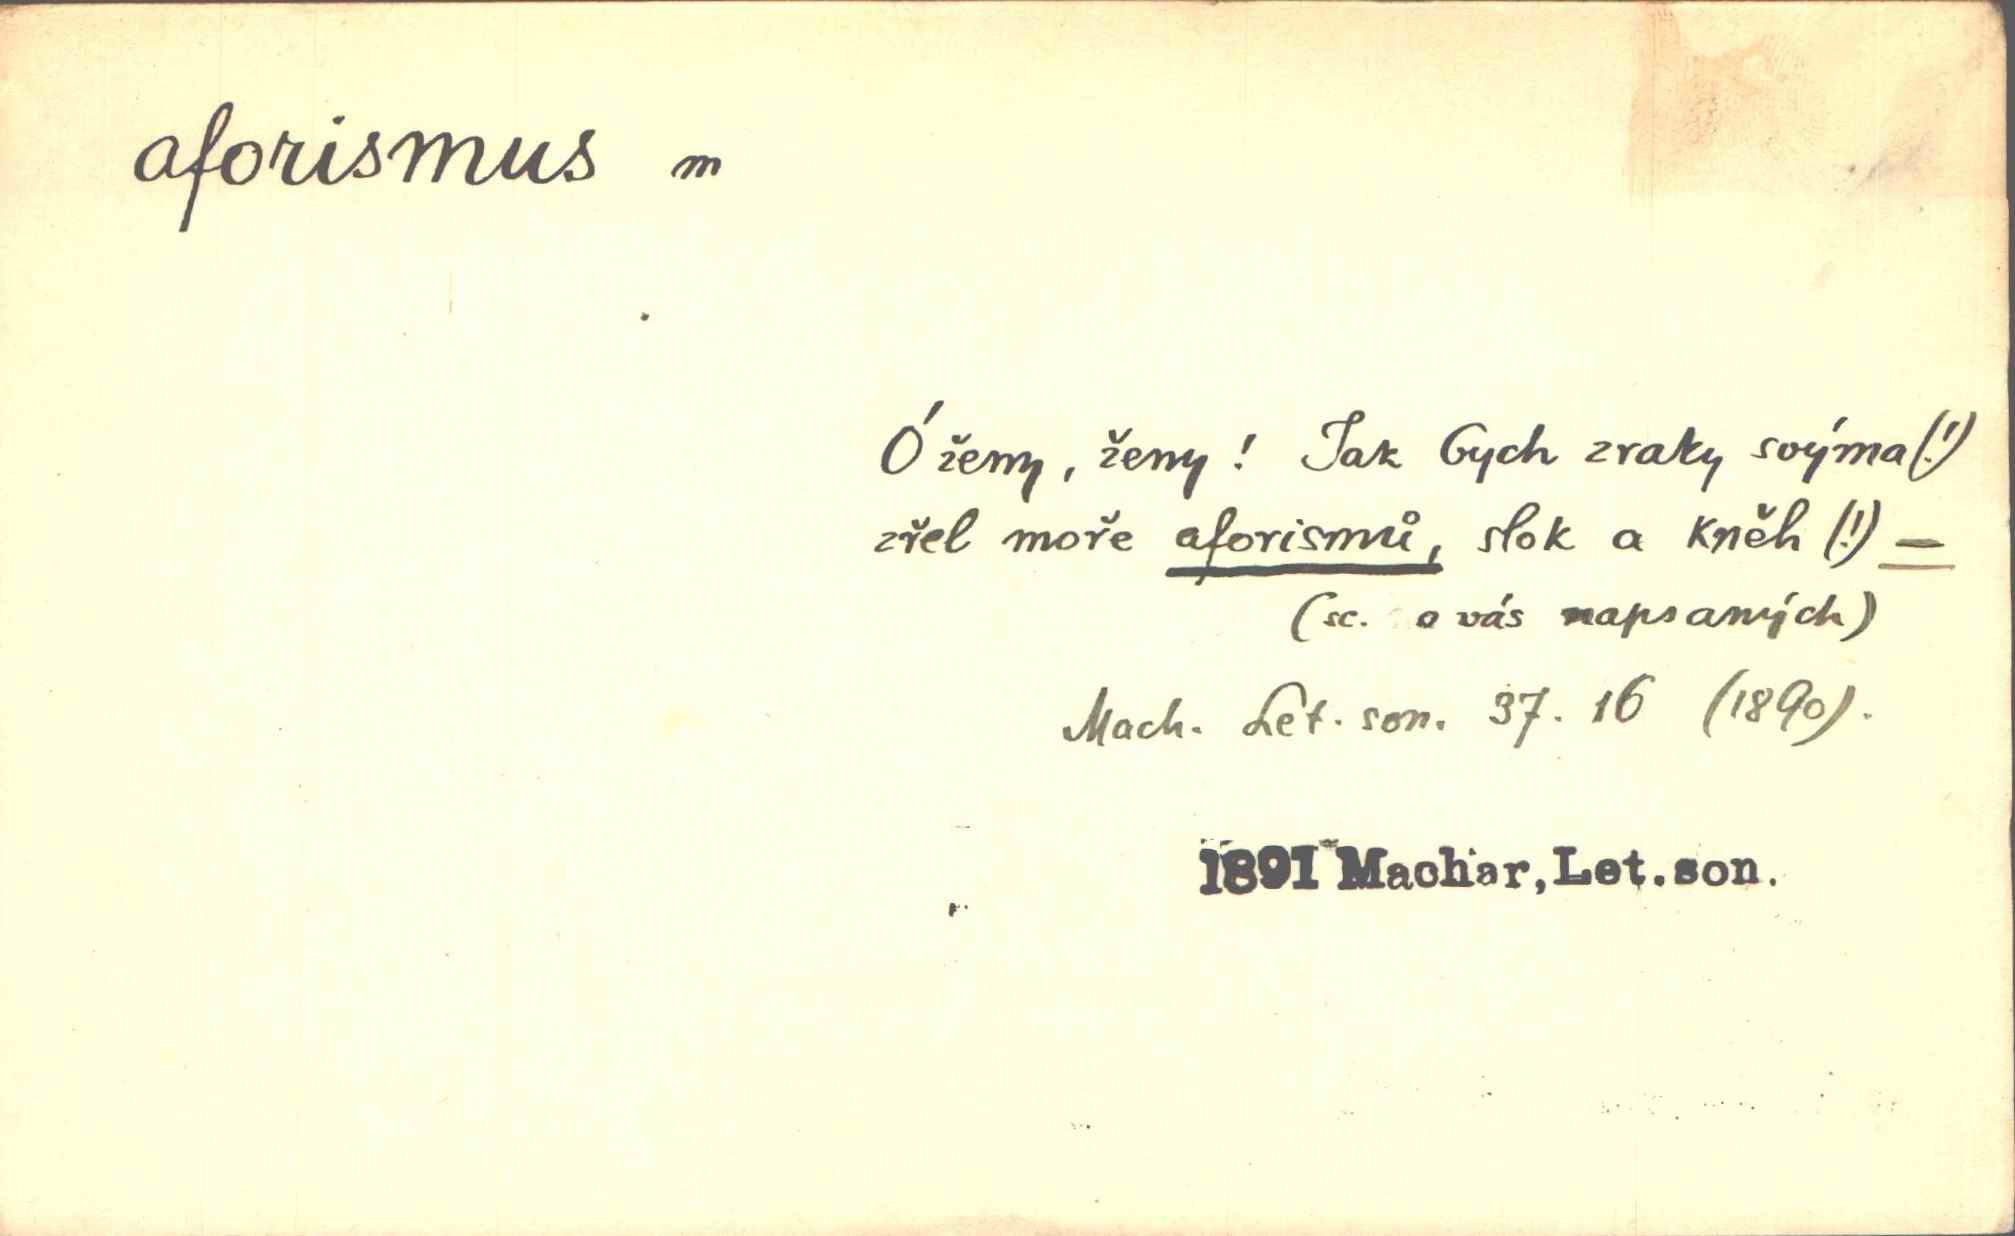 aforismus m
Ó ženy, ženy! Jak bych zraky svýma (!)
zřel moře aforismů, slok a kněh (!) =
(sc. o vás napsaných)
Mach. Let. son. 37. 16 (1890).
1891 Machar, Let. son.